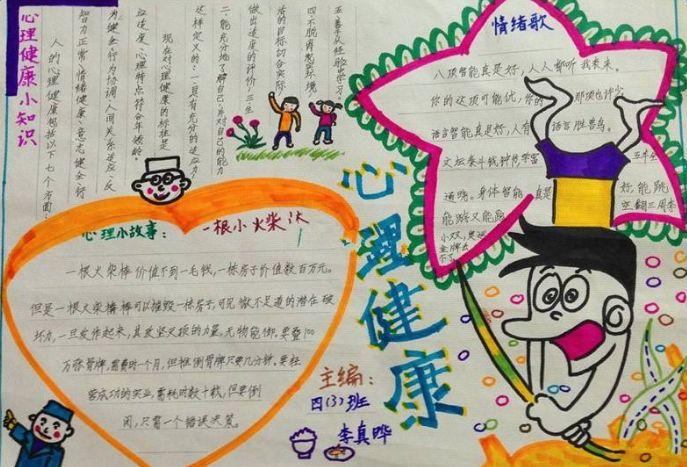 心理健康小知识
人的心理健康包括以下七个方面:
智力正常、情绪健康、意志健全、行
为健全、行为协调、人间关系适应、反
应适度、心理特点符合年龄的。
现在对心理健康的标准是
这样定义的:一、具有充分的适应力
二、能充分地了解自己,并对自己的能力
做出适度的评价;三、生
活的目标切合实际
四、不脱离现实环境
五、善于从经验中学习
情绪歌
八项智能真是好,人人都听我表来。
你的这项可能优,你的那项也许少
语言智能真是好,人有语言胜兽鸟。
文坛泰斗钱钟书学富五车全
通晓。身体智能真是
能能跳
能游又能跑空翻三周半
小双,奥运
金牌
心理小故事:一根小火柴
一根火柴棒价值不到一毛钱,一栋房子价值数百万元。
但是一根火柴棒棒可以摧毁一栋房子,可见微不足道的潜在破
坏力,一旦发作起来,其攻坚灭顶的力量,无物能御。要叠100
万张骨牌,需费时一个月,但推倒骨牌只要几分钟。要柱
营成功的实业,需耗时数十载,但要倒
闭,只需一个错误决策。
心理健康
主编:
四(3)班
李真晔